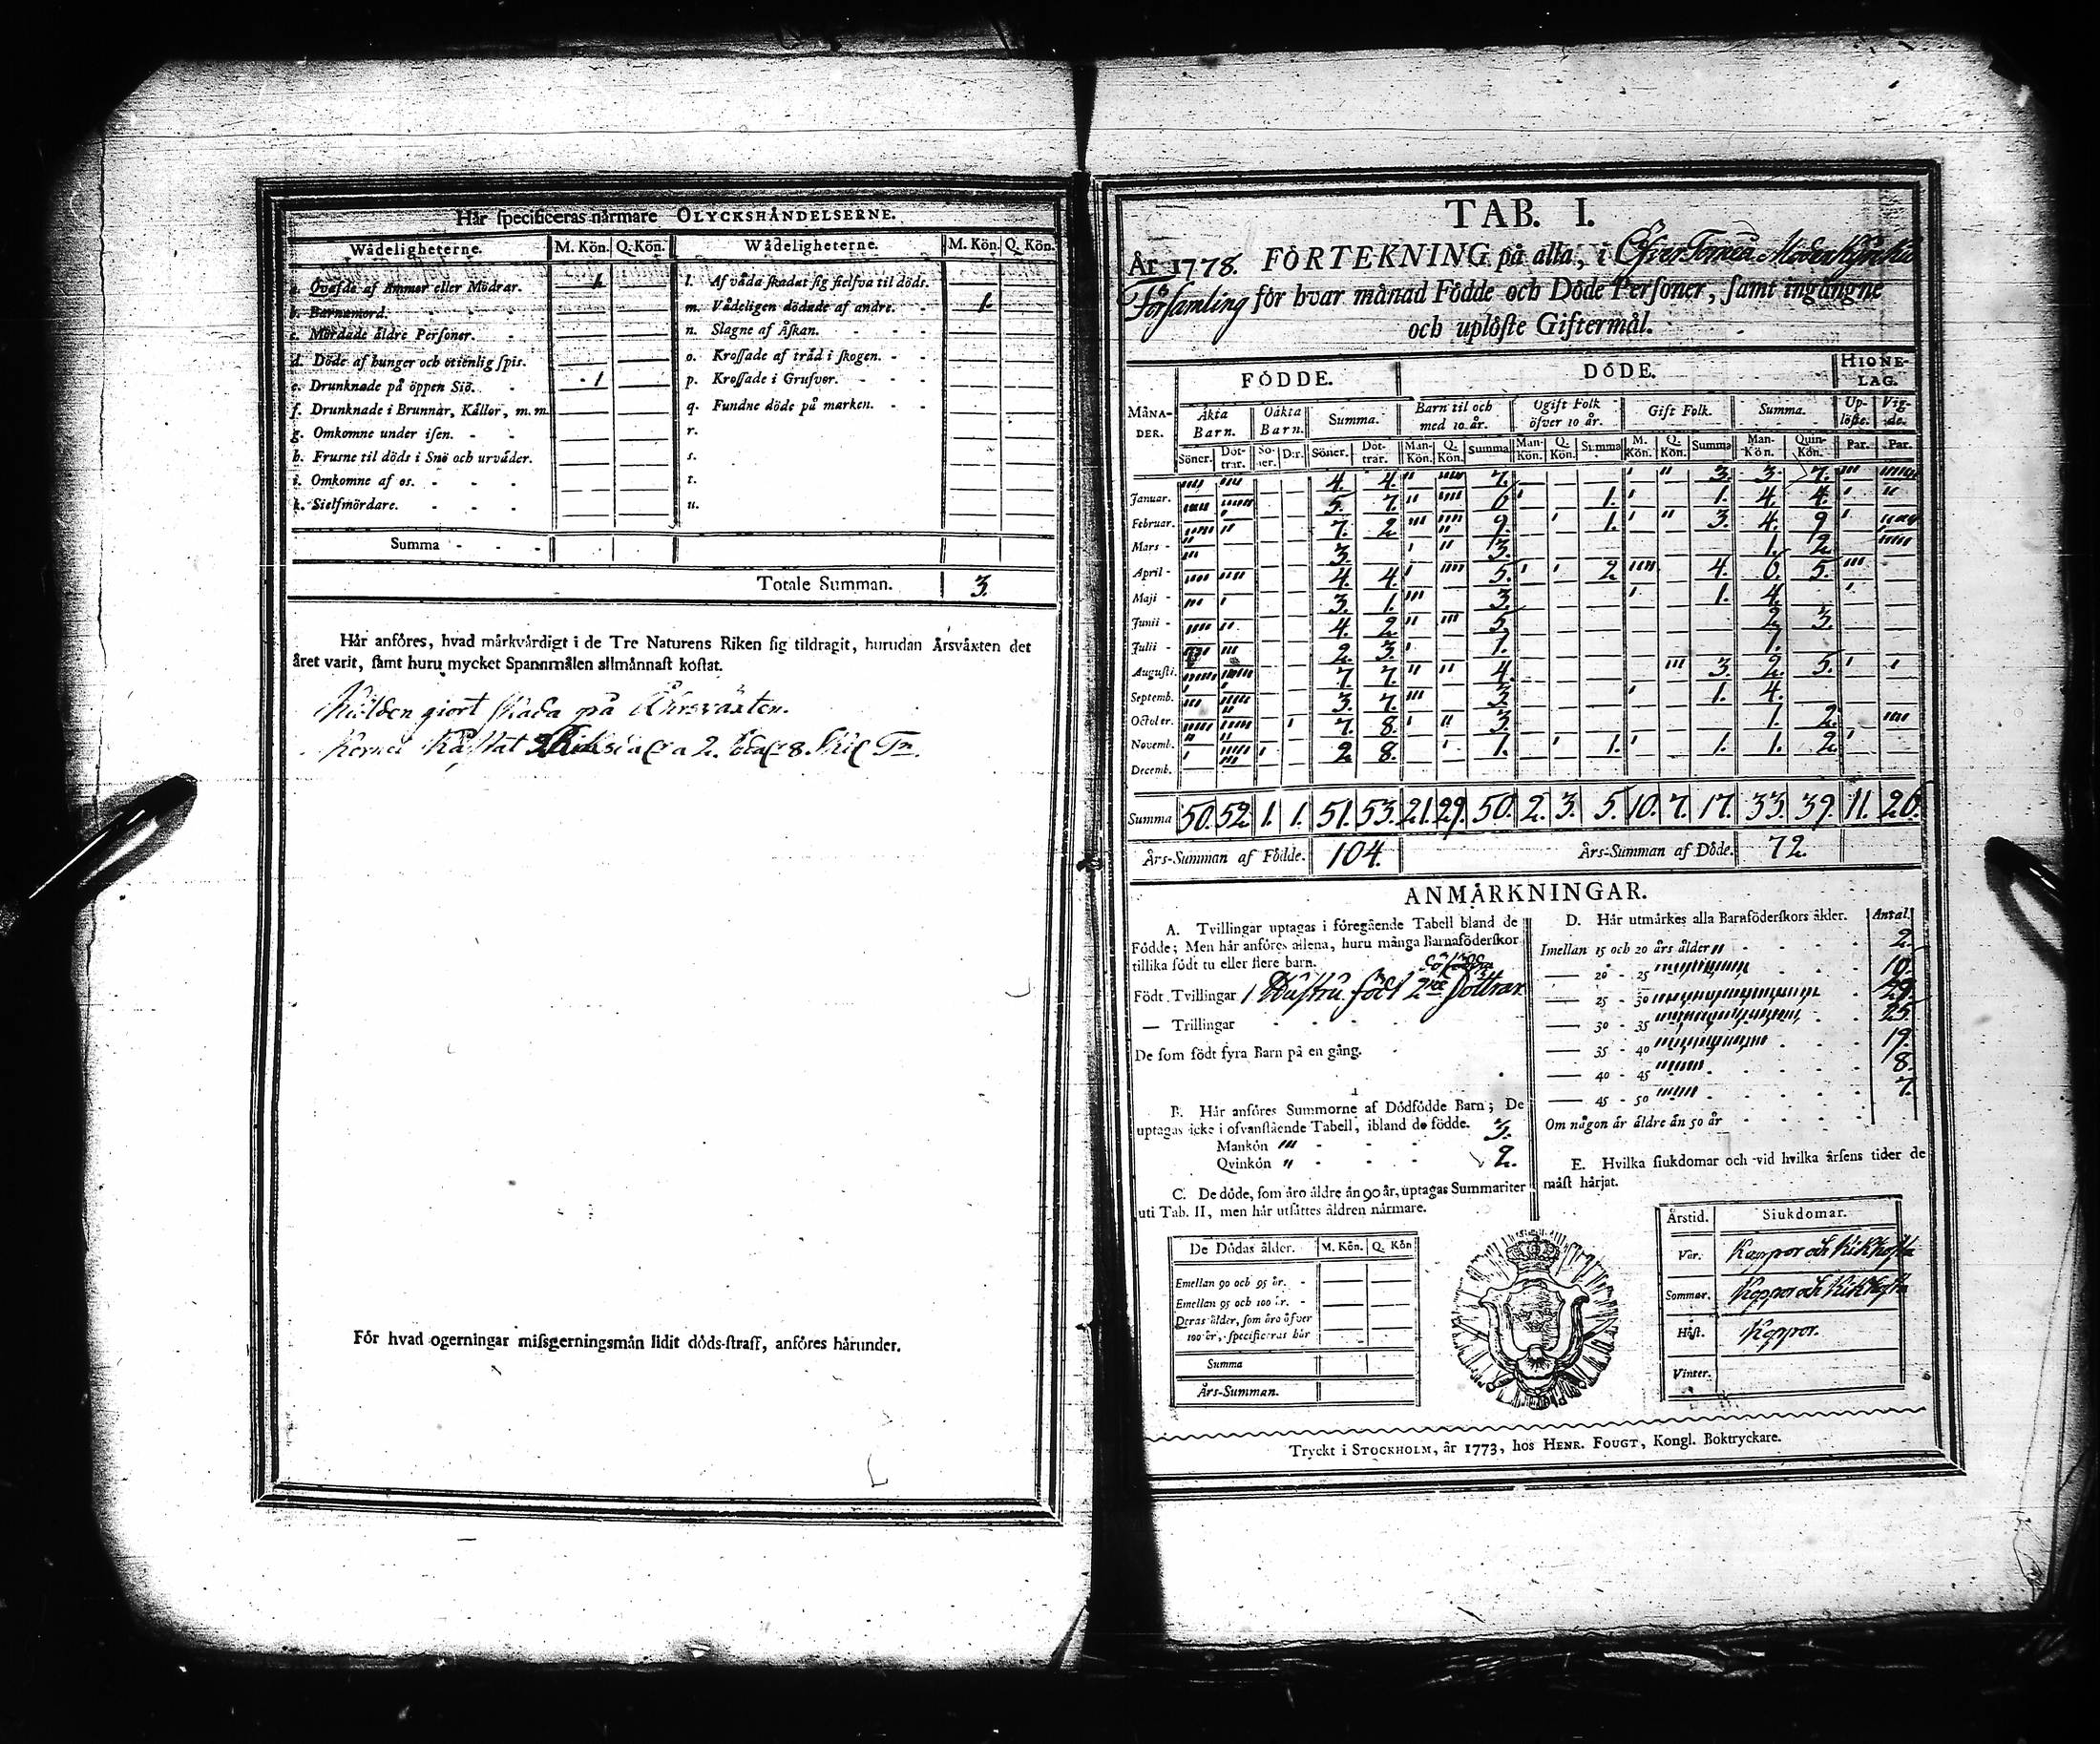 Här specificeras närmare OLYCKSHÄNDELSERNE.
Wådeligheterne. M. Kön. Q. Kön. Wådeligheterne. M. Kön. Q. Kön.
a. Qvafde af Ammor eller Mödrar. 1 l. Af våda skadat sig sielfva til döds.
b. Barnamord. m. Vådeligen dödade af andre. 1
c. Mördade äldre Personer. n. Slagne af Åskan.
d. Döde af hunger och otienlig spis. o. Krossade af träd i skogen.
e. Drunknade på öppen Siö. 1 p. Krossade i Grufvor.
f. Drunknade i Brunnar, Källor, m. m. q. Fundne döde på marken.
g. Omkomne under isen. r.
h. Frusne til döds i Snö och urväder. s.
i. Omkomne af os. t.
k. Sielfmördare. u.
Summa
Totale Summan. 3.
Här anföres, hvad märkvärdigt i de Tre Naturens Riken sig tildragit, hurudan Årsväxten det
året varit, samt huru mycket Spannmålen allmännast kostat.
Kölden giort skada på Åhrsväxten.
Kornet Kåstat
För hvad ogerningar missgerningsmän lidit döds-straff, anföres härunder.
TAB. I.
År 1778. FÖRTEKNING på alla, i Öfver Torneå Moderkyrkio
Församling för hvar månad Födde och Döde Personer, samt ingångne
och uplöste Giftermål.
MÅNADER. FÖDDE. DÖDE. HIONELAG.
Äkta Barn. Oäkta Barn. Summa. Barn til och med 10. år. Ogift Folk öfver 10 år. Gift Folk. Summa. Uplöste. Vigde.
Söner. Döttrar. Söner. D:r. Söner. Döttrar. Man-Kön. Q. Kön. Summa Man-Kön. Q. Kön. Summa M. Kön. Q. Kön. Summa Man-Kön. Quin-Kön. Par. Par.
Januar. 4. 4. 7. 3. 3. 7.
Februar. 5. 7. 6 1. 1. 4. 4.
Mars 7. 2 9. 1. 3. 4. 9
April 3. 3. 1. 2.
Maji 4. 4. 5. 2 4. 6. 5.
Junii 3. 1. 3. 1. 4.
Julii 4. 2 5. 2 3.
Augusti. 2. 3. 1. 1.
Septemb. 7. 7. 4. 3. 2. 5.
October. 3. 7. 3. 1. 4.
Novemb. 7. 8. 3. 1. 2.
Decemb. 2 8. 1. 1. 1. 1. 2.
Summa 50. 52 1. 1. 51. 53. 21. 29. 50. 2. 3. 5. 10. 7. 17. 33. 39. 11. 26.
Års-Summan af Födde. 104. Års-Summan af Döde. 72.
ANMÄRKNINGAR.
A. Tvillingar uptagas i föregående Tabell bland de
Födde; Men här anföres allena, huru många Barnaföderskor
tillika födt tu eller flere barn.
Födt Tvillingar 1 Hustru födt 2ne döttrar
— Trillingar
De som födt fyra Barn på en gång.
B. Här anföres Summorne af Dödfödde Barn; De
uptagas icke i ofvanstående Tabell, ibland de födde.
Mankön 3.
Qvinkön 2.
C. De döde, som äro äldre än 90 år, uptagas Summariter
uti Tab. II, men här utsättes åldren närmare.
De Dödas ålder. M. Kön. Q. Kön
Emellan 90 och 95 år.
Emellan 95 och 100 år.
Deras ålder, som äro öfver
100 år, specificeras här
Summa
Års-Summan.
D. Här utmärkes alla Barnföderskors ålder. Antal.
Imellan 15 och 20 års ålder 2.
— 20 - 25 10.
— 25 - 30 28.
— 30 - 35 25.
— 35 - 40 19.
— 40 - 45 8.
— 45 - 50 7.
Om någon är äldre än 50 år
E. Hvilka siukdomar och vid hvilka årsens tider de
mäst härjat.
Årstid. Siukdomar.
Vår. Koppor och Kikhosta
Sommar. Koppor och Kikhosta
Höst. Koppor.
Vinter.
Tryckt i STOCKHOLM, år 1773, hos HENR. FOUGT, Kongl. Boktryckare.